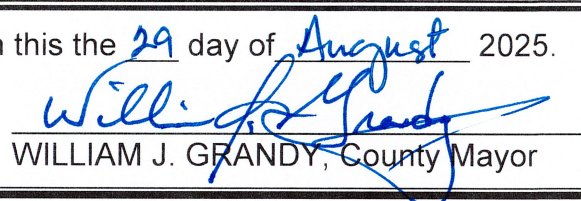 this the 29 day of August 2025.
William J. Grandy
WILLIAM J. GRANDY, County Mayor